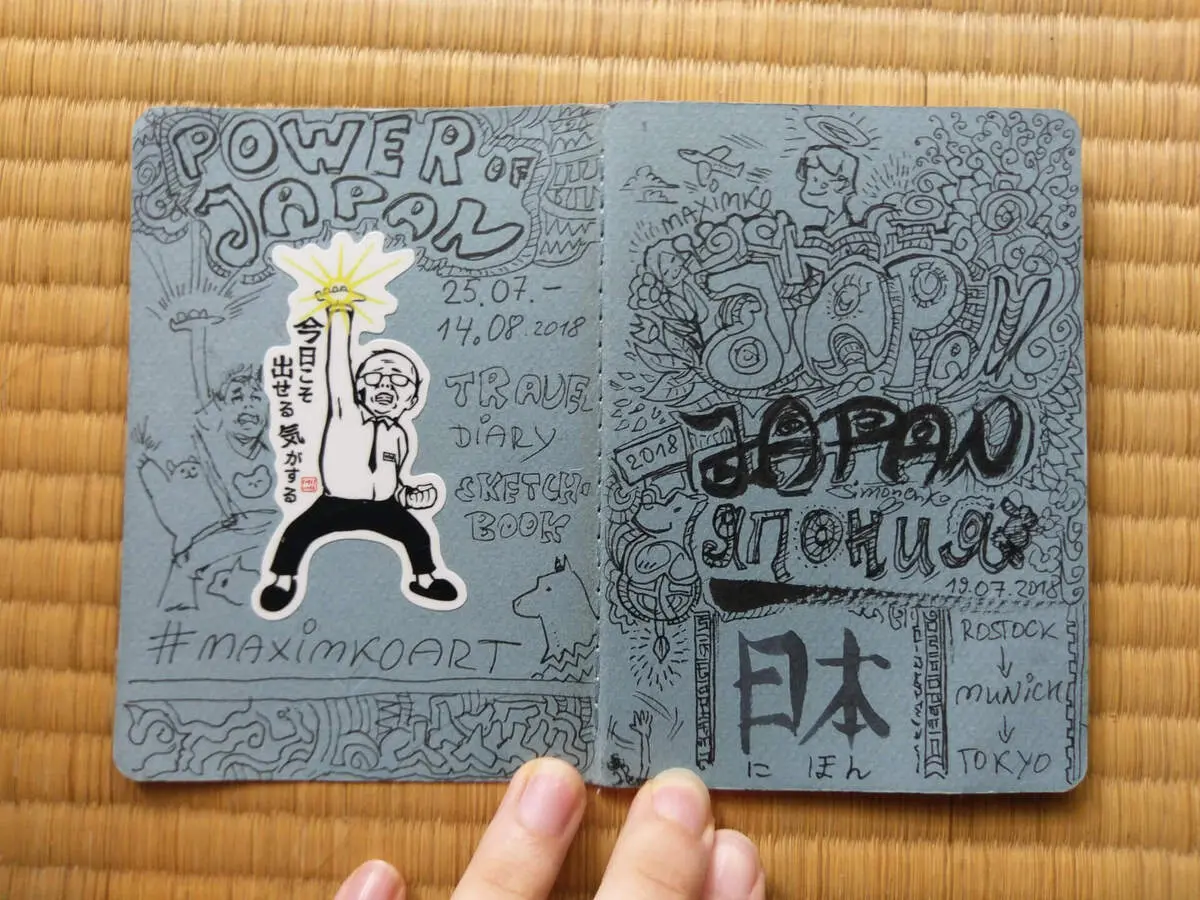 POWER OF
JAPAN
25.07.-
14.08.2018
今日こそ
出せる気がする
TRAVEL
DiARY
SKETCH-
BOOK
#MAXiMKOART
MAXiMKO
JAPAN
2018
JAPAN
Simonenko
ЯПОНИЯ
19.07.2018
日本
にほん
ROSTOCK
↓
MUNiCH
↓
TOKYO